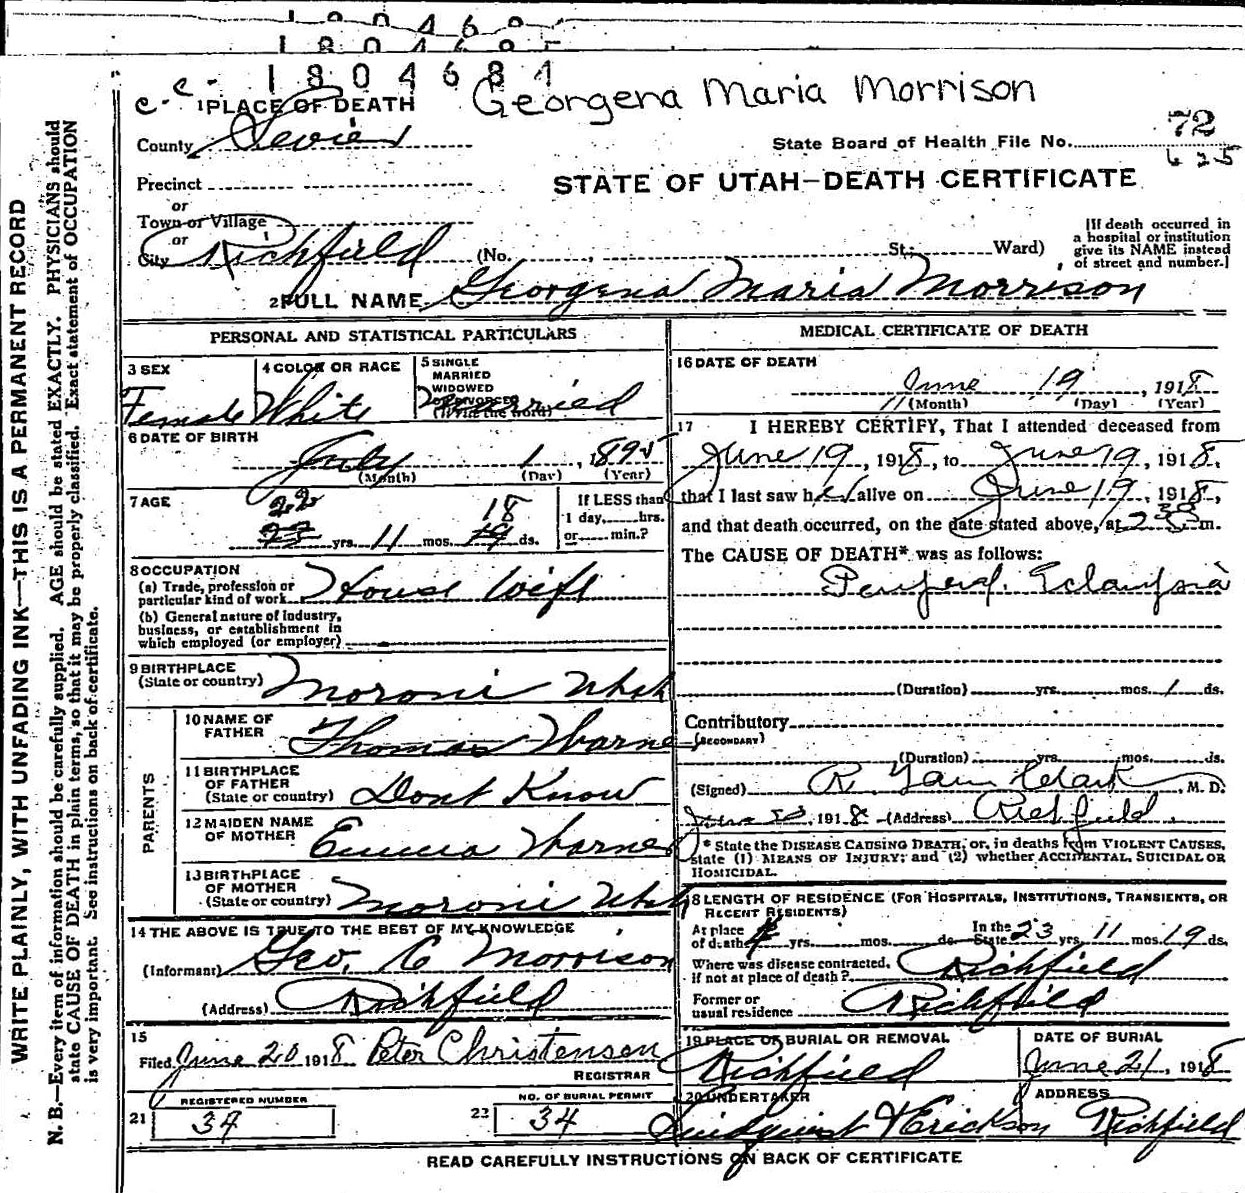 1804681
c. c.
Georgena Maria Morrison
1 PLACE OF DEATH
County Sevier
State Board of Health File No. 72
625
Precinct
or
Town or Village
or
City Richfield
STATE OF UTAH—DEATH CERTIFICATE
(No. , St; Ward)
[If death occurred in
a hospital or institution
give its NAME instead
of street and number.]
2 FULL NAME Georgena Maria Morrison
PERSONAL AND STATISTICAL PARTICULARS
3 SEX
Female
4 COLOR OR RACE
White
5 SINGLE
MARRIED
WIDOWED
OR DIVORCED
(Write the word)
Married
6 DATE OF BIRTH
July 1, 1895
(Month) (Day) (Year)
7 AGE
22 18
23 yrs. 11 mos. 19 ds.
If LESS than
1 day, hrs.
or min.?
8 OCCUPATION
(a) Trade, profession or
particular kind of work House Wife
(b) General nature of industry,
business, or establishment in
which employed (or employer)
9 BIRTHPLACE
(State or country) Moroni Utah
PARENTS
10 NAME OF
FATHER Thomas Warner
11 BIRTHPLACE
OF FATHER
(State or country) Dont Know
12 MAIDEN NAME
OF MOTHER Emma Warner
13 BIRTHPLACE
OF MOTHER
(State or country) Moroni Utah
14 THE ABOVE IS TRUE TO THE BEST OF MY KNOWLEDGE
(Informant) Geo. C Morrison
(Address) Richfield
15
Filed June 20 1918 Peter Christenson
REGISTRAR
REGISTERED NUMBER
21 34
NO. OF BURIAL PERMIT
22 34
MEDICAL CERTIFICATE OF DEATH
16 DATE OF DEATH
June 19, 1918
(Month) (Day) (Year)
17 I HEREBY CERTIFY, That I attended deceased from
June 19, 1918, to June 19, 1918,
that I last saw her alive on June 19, 1918,
and that death occurred, on the date stated above, at 2 30 m.
The CAUSE OF DEATH* was as follows:
Eclampsia
(Duration) yrs. mos. 1 ds.
Contributory
(SECONDARY)
(Duration) yrs. mos. ds.
(Signed) R. Clark, M. D.
June 20, 1918 (Address) Richfield.
* State the DISEASE CAUSING DEATH, or, in deaths from VIOLENT CAUSES,
state (1) MEANS OF INJURY; and (2) whether ACCIDENTAL, SUICIDAL OR
HOMICIDAL.
18 LENGTH OF RESIDENCE (FOR HOSPITALS, INSTITUTIONS, TRANSIENTS, OR
RECENT RESIDENTS)
At place
of death 4 yrs. mos. ds.
In the
State 23 yrs. 11 mos. 19 ds.
Where was disease contracted,
if not at place of death? Richfield
Former or
usual residence Richfield
19 PLACE OF BURIAL OR REMOVAL
Richfield
DATE OF BURIAL
June 21, 1918
20 UNDERTAKER
Lindquist & Erickson
ADDRESS
Richfield
READ CAREFULLY INSTRUCTIONS ON BACK OF CERTIFICATE
WRITE PLAINLY, WITH UNFADING INK—THIS IS A PERMANENT RECORD
N. B.—Every item of information should be carefully supplied. AGE should be stated EXACTLY. PHYSICIANS should
state CAUSE OF DEATH in plain terms, so that it may be properly classified. Exact statement of OCCUPATION
is very important. See instructions on back of certificate.